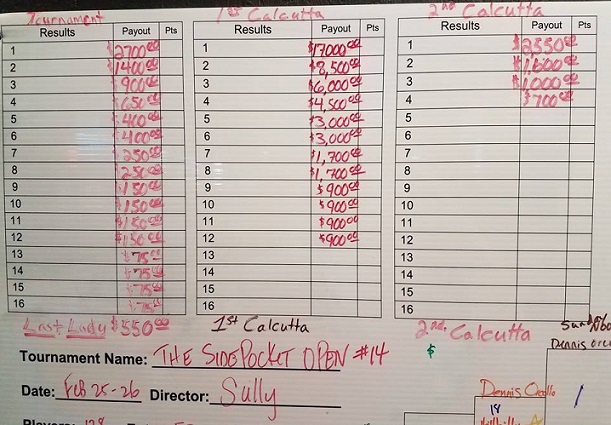 Tournament 1st Calcutta 2nd Calcutta
Results Payout Pts Results Payout Pts Results Payout Pts
1 $2700.00 1 $17000.00 1 $2550.00
2 $1400.00 2 $8,500.00 2
3 $900.00 3 $6,000.00 3 $1,000.00
4 $650.00 4 $4,500.00 4 $700.00
5 $400.00 5 $3,000.00 5
6 $400.00 6 $3,000.00 6
7 $250.00 7 $1,700.00 7
8 $250.00 8 $1,700.00 8
9 $150.00 9 $900.00 9
10 $150.00 10 $900.00 10
11 $150.00 11 $900.00 11
12 $150.00 12 $900.00 12
13 $75.00 13 13
14 $75.00 14 14
15 $75.00 15 15
16 $75.00 16 16
Last Lady $550.00 1st Calcutta 2nd Calcutta
$
Tournament Name: THE SIDEPOCKET OPEN #14
Date: Feb 25-26 Director: Sully
Dennis
Dennis
18
Players: 128